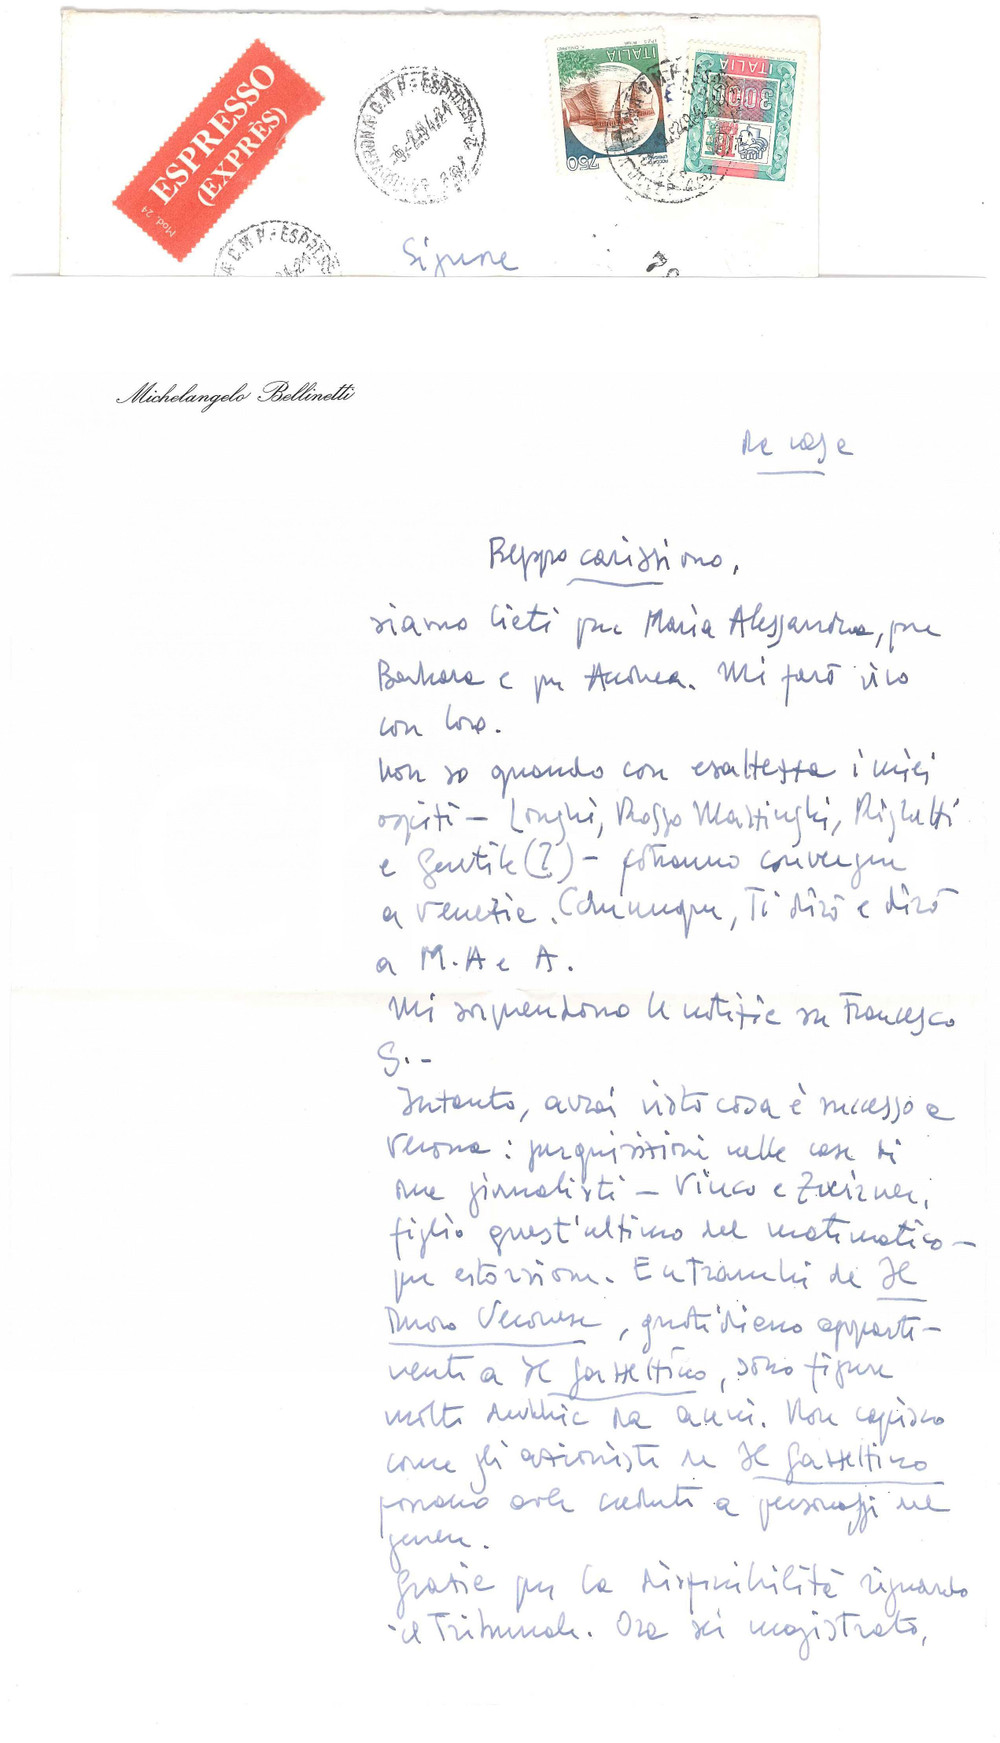 ESPRESSO
(EXPRÈS)
Mod. 24
ITALIA
750
ITALIA
3000
Signore
Michelangelo Bellinetti
da casa
Beppo carissimo,
siamo lieti per Maria Alessandra, per
Barbara e per Andrea. Mi farò vivo
con loro.
Non so quando con esattezza i miei
ospiti — Longhi, Rosso Mazzinghi, Righetti
e Gentile (?) — potranno convergere
a Venezia. Comunque, Ti dirò e dirò
a M.A e A.
Mi sorprendono le notizie su Francesco
S. -
Intanto, avrai visto cosa è successo a
Verona: perquisizioni nelle case di
due giornalisti — Vinco e Zwirner,
figlio quest'ultimo del matematico —
per estorsione. Entrambi de Il
Nuovo Veronese, quotidiano apparte-
nente a Il Gazzettino, sono figure
molto dubbie da anni. Non capisco
come gli azionisti de Il Gazzettino
possano aver creduto a personaggi del
genere.
Grazie per la disponibilità riguardo
il Tribunale. Ora sei magistrato,